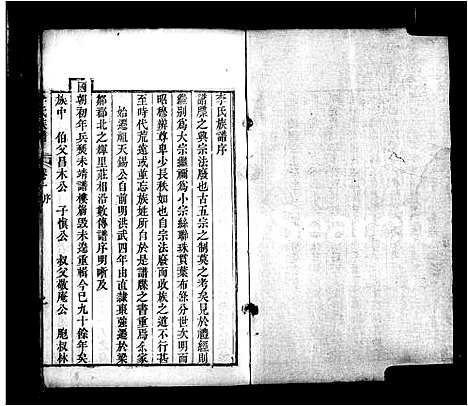 李氏族譜序
譜牒之興宗法廢也古五宗之制莫之考矣見於禮經則
繼別為大宗繼禰為小宗絲聯珠貫葉布條分世次明而
昭穆辨尊卑少長秩如宗法廢而收族之道不行嘗
至時代荒遠或並忘族姓所自於是譜牒之書重焉余家
始遷祖天錫公自前明洪武四年由直隸棗強遷於梁
鄒郡北之輝里莊相沿數傳譜序明晰及
國朝初年兵燹未靖譜樓舊毀未遑重輯今已九十餘年矣
族中 伯父昌木公 子慎公 叔父敬庵公 胞叔林